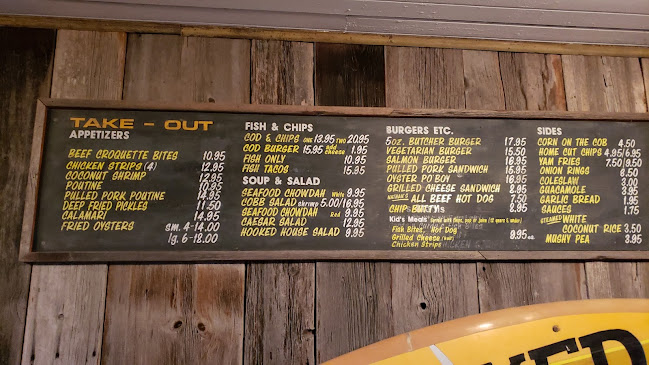 TAKE - OUT
APPETIZERS
BEEF CROQUETTE BITES 10.95
CHICKEN STRIPS (4) 12.95
COCONUT SHRIMP 12.95
POUTINE 10.95
PULLED PORK POUTINE 14.95
DEEP FRIED PICKLES 9.50
CALAMARI 14.95
FRIED OYSTERS sm. 4-14.00
lg. 6-18.00
FISH & CHIPS
COD & CHIPS ONE 13.95 TWO 20.95
COD BURGER 15.95 add cheese 1.95
FISH ONLY 10.95
FISH TACOS 15.95
SOUP & SALAD
SEAFOOD CHOWDAH White 9.95
COBB SALAD shrimp 5.00/16.95
SEAFOOD CHOWDAH Red 9.95
CAESAR SALAD 12.95
HOOKED HOUSE SALAD 9.95
BURGERS ETC.
5oz. BUTCHER BURGER 17.95
VEGETARIAN BURGER 15.50
SALMON BURGER 16.95
PULLED PORK SANDWICH 15.95
OYSTER PO'BOY 16.95
GRILLED CHEESE SANDWICH 8.95
ALL BEEF HOT DOG 7.50
CHIP BUTTY 8.95
Kid's Meals
Fish Bites, Hot Dog
Grilled Cheese 9.95 ea.
Chicken Strips
SIDES
CORN ON THE COB 4.50
HOME CUT CHIPS 4.95/6.95
YAM FRIES 7.50/9.50
ONION RINGS 6.50
COLESLAW 3.50
GUACAMOLE 3.95
GARLIC BREAD 1.95
SAUCES 1.75
STEAMED WHITE
COCONUT RICE 3.50
MUSHY PEA 3.95